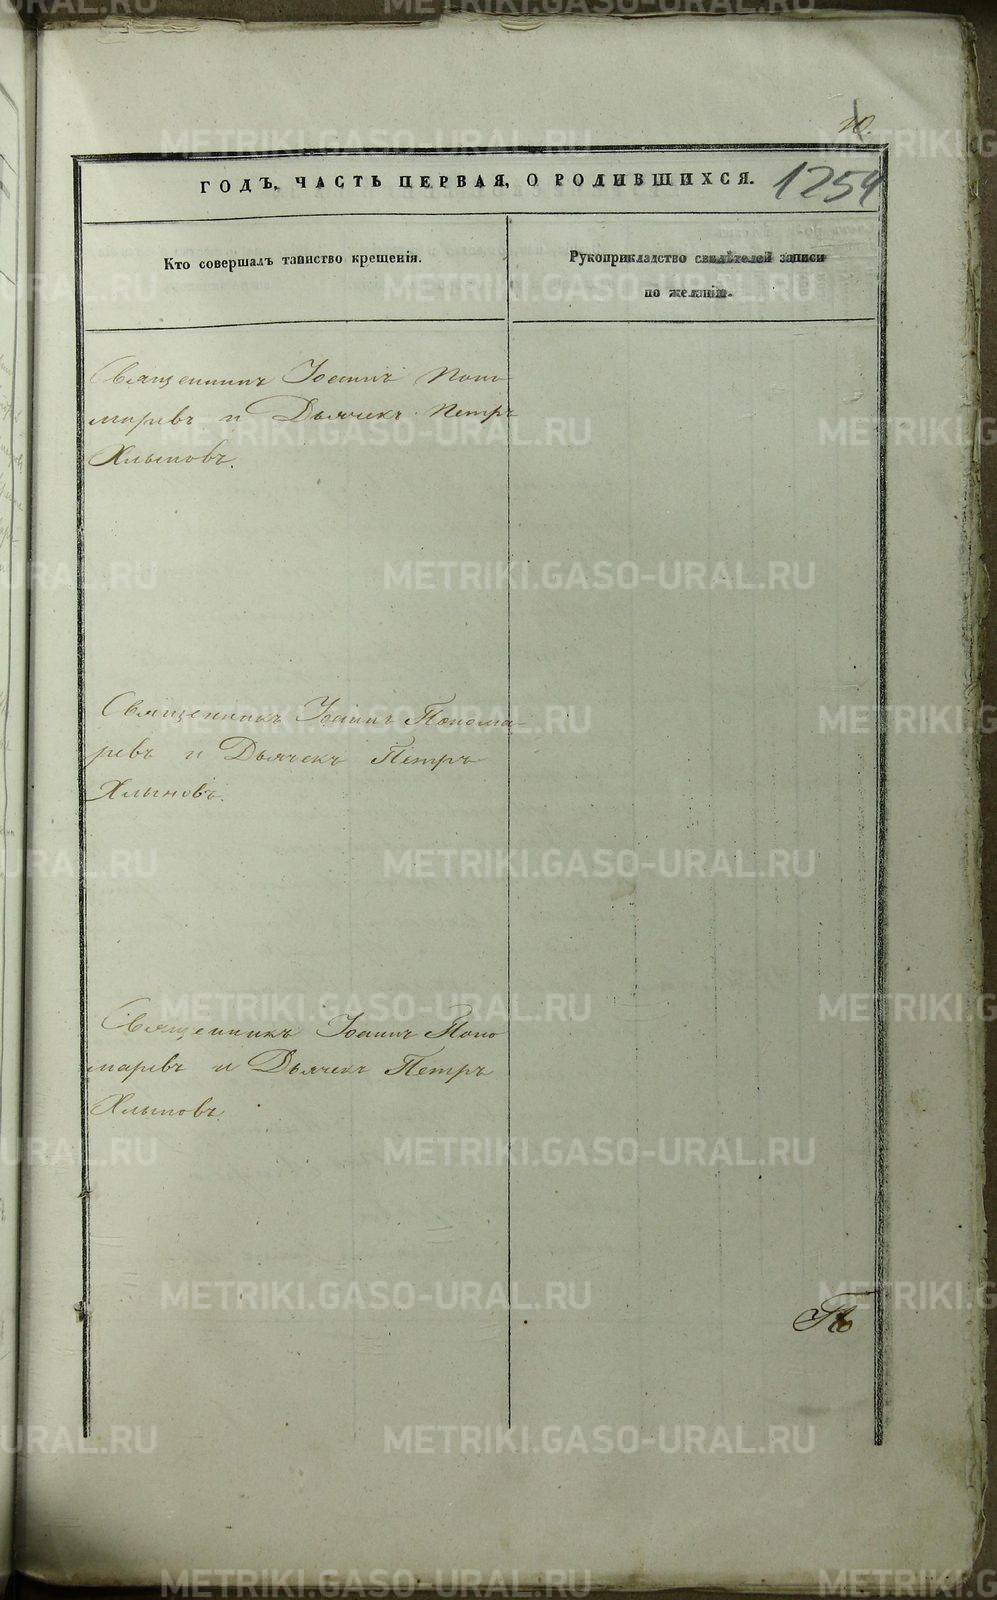 10.
ГОДЪ, ЧАСТЬ ПЕРВАЯ, О РОДИВШИХСЯ.
1254
Кто совершалъ таинство крещенія.
Рукоприкладство свидѣтелей записи
по желанію.
Священникъ Іоаннъ Поно
маревъ и Дьячекъ Петръ
Хлыновъ.
Священникъ Іоаннъ Понома-
ревъ и Дьячекъ Петръ
Хлыновъ.
Священникъ Іоаннъ Поно
маревъ и Дьячекъ Петръ
Хлыновъ.
По
METRIKI.GASO-URAL.RU